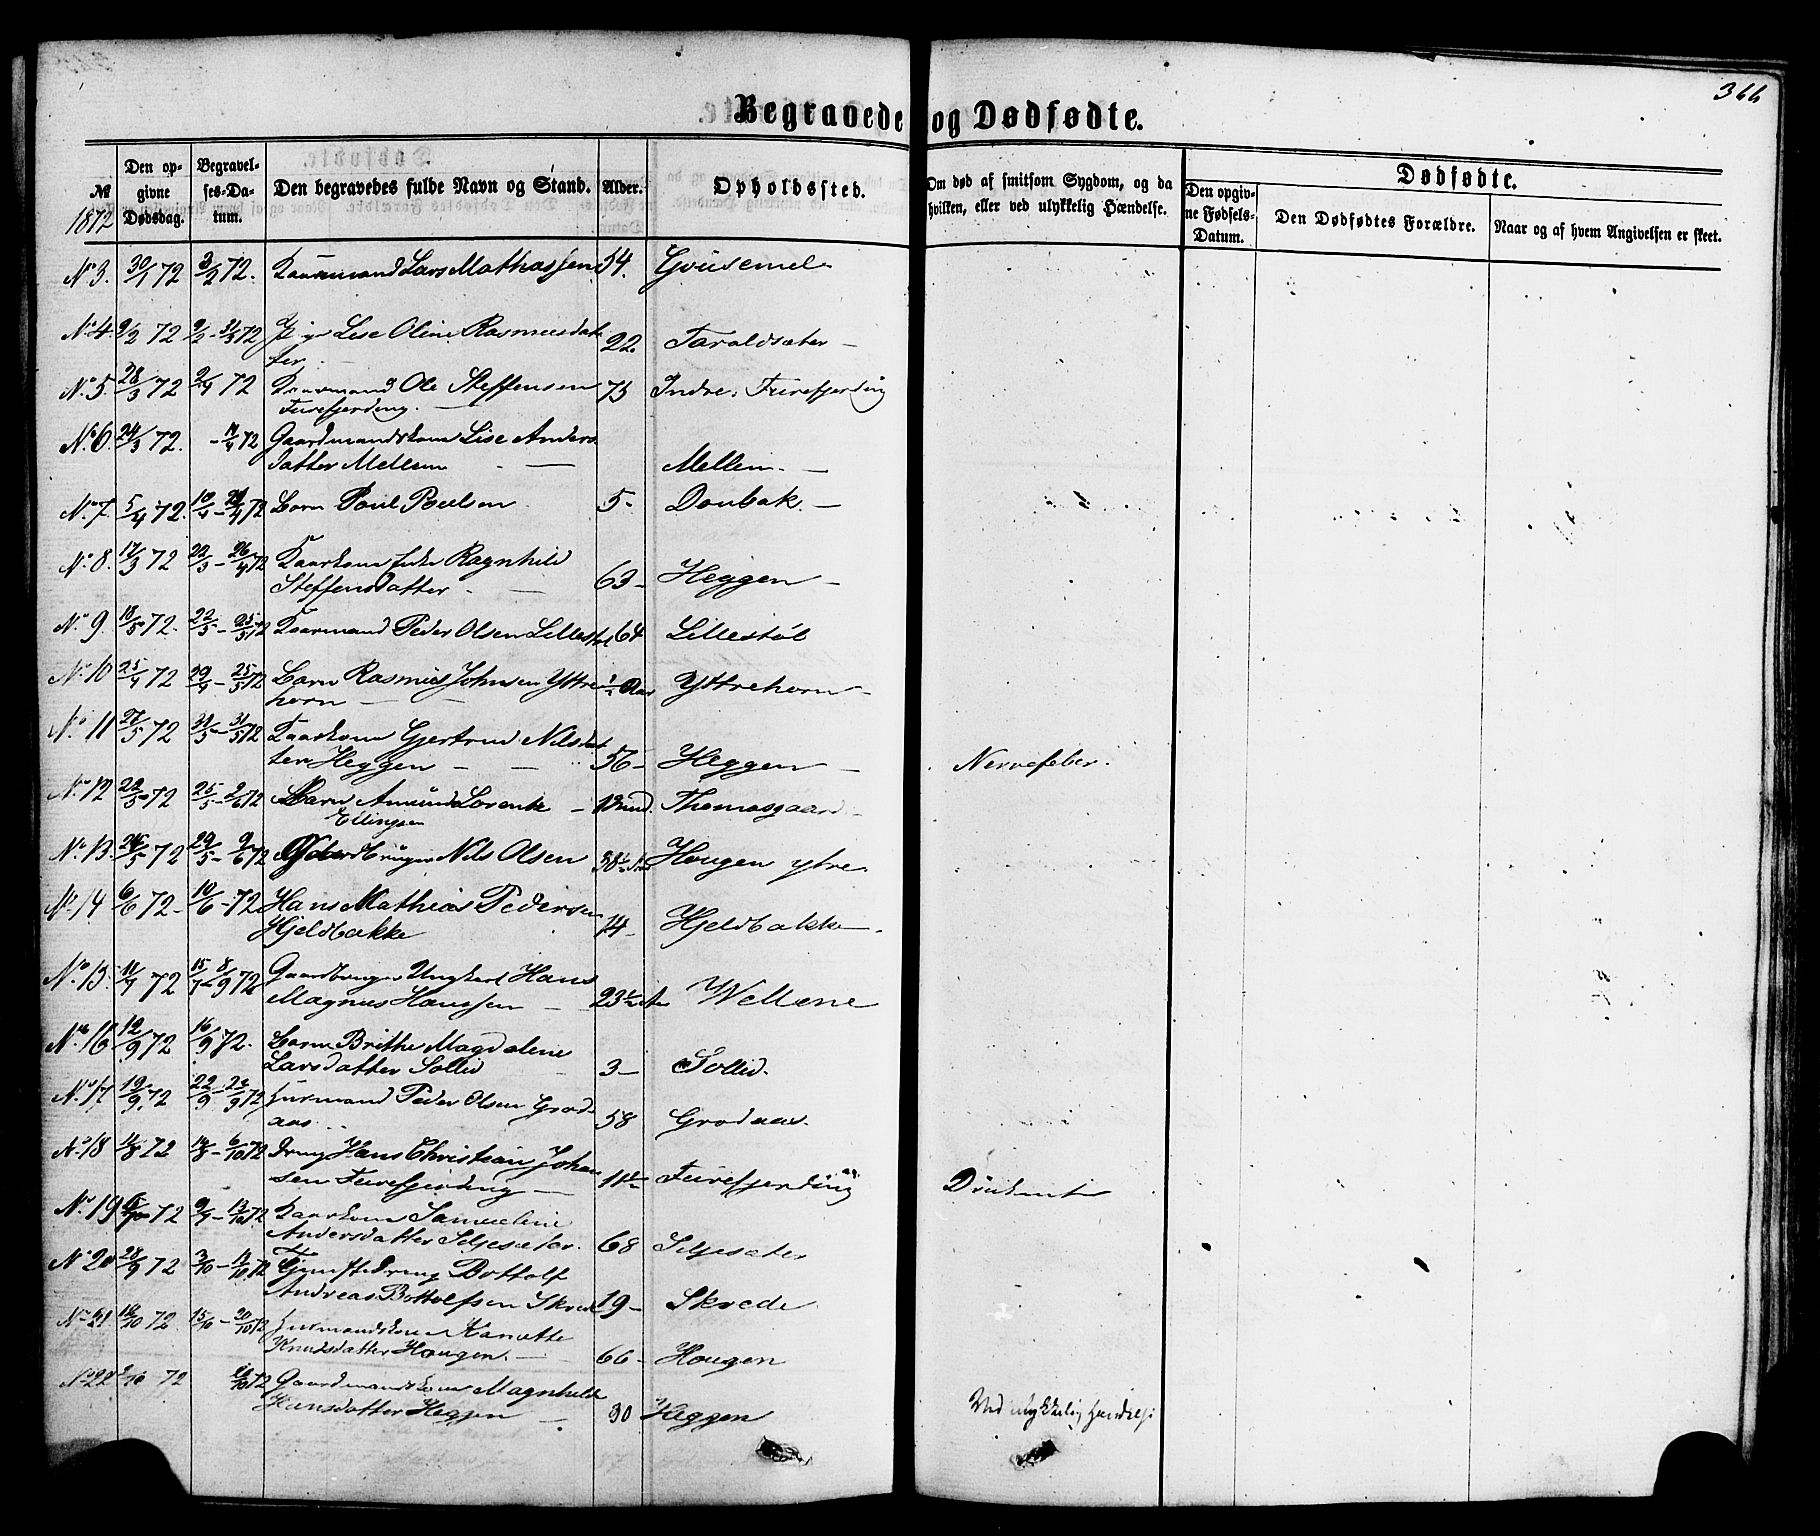 366
Begravede og Dødfødte.
№
1872
Den opgivne Dødsdag.
Begravelses-Datum.
Den begravedes fulde Navn og Stand.
Alder.
Opholdssted.
Om død af smitsom Sygdom, og da hvilken, eller ved ulykkelig Hændelse.
Dødfødte.
Den opgivne Fødsels-Datum.
Den Dødfødtes Forældre.
Naar og af hvem Angivelsen er skeet.
No 3. 30/1 72 3/2 72. Kaarmand Lars Mathassen 54. Grusemel
No 4. 9/2 72 9/2 - 31/3 72 Pige Lise Oline Rasmusdat 22. Taraldsæter
ter
No 5. 28/3 72 2/4 72 Kaarmand Ole Steffensen 73 Indre Furefjerding
Furefjerding.
No 6. 24/3 72. - 72 Gaardmandskone Lise Anders
datter Mellem Mellem
No 7. 5/4 72. 10/4 - 21/4 72 Barn Poul Poulsen 5 - Doubak
No 8. 17/3 72 22/3 - 26/4 72 Kaarkone Enke Ragnhild
Steffensdatter 63 - Heggen
No 9. 18/5 72. 22/5 - 25/5 72 Kaarmand Peder Olsen Lillestøl 64 Lillestøl
No 10 25/4 72 29/4 - 25/5 72 Barn Rasmus Johnsen Yttre Aar Yttrehorn
horn
No 11 27/5 72 31/5 - 31/5 72 Kaarkone Gjertrud Nilsdat
ter Heggen 56 - Heggen Nervefeber.
No 12 22/5 72 25/5 - 2/6 72 Barn Amund Lorents Thomasgaard
Ellingsen
No 13. 24/5 72 29/5 - 9/6 72 Gaardbruger Nils Olsen 38½ Aar Hougen ytre
No 14 6/6 72 - 10/6 - 72 Hans Mathias Pedersen
Hjeldbakke 14 - Hjeldbakke
No 15. 11/7 72 15/7 - 8/9 72 Gaardbruger Ungkarl Hans
Magnus Hanssen 23½ Wellene
No 16 12/9 72 16/9 72. Barn Brithe Magdalene
Larsdatter Sollid 3 - Sollid.
No 17 19/9 72 22/9 - 22/9 72 Huusmand Peder Olsen Grod
aas 58 Grodaas.
No 18 11/8 72 14/8 - 6/10 72 Dreng Hans Christian Johan
sen Furefjerding 11½ Furefjerding Druknet
No 19 72 - 13/10 72 Kaarkone Samueline
Andersdatter Seljesæter. 68 Seljesæter
No 20 28/9 72 3/10 - 13/10 72 Tjenestedreng Bottolf
Andreas Bottolfsen Skrede 19 - Skrede
No 21 72 15/10 - 20/10 72 Huusmandskone Nanette
Knudsdatter Haugen. 66 - Hougen
No 22 72 72 Gaardmandskone Magnhilde
Hansdatter Heggen 30 Heggen Ved ulykkelig Hændelse